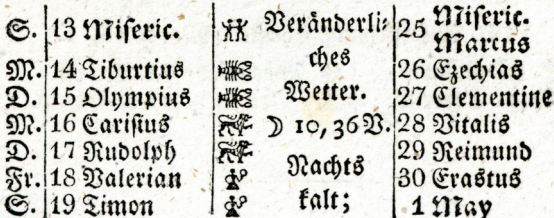 S. 13 Miseric. Veränderli= 25 Miseric. Marcus
M. 14 Tiburtius ches 26 Ezechias
D. 15 Olympius Wetter. 27 Clementine
M. 16 Carisius ☽ 10, 36 V. 28 Vitalis
D. 17 Rudolph Nachts 29 Reimund
Fr. 18 Valerian kalt; 30 Erastus
S. 19 Timon 1 May